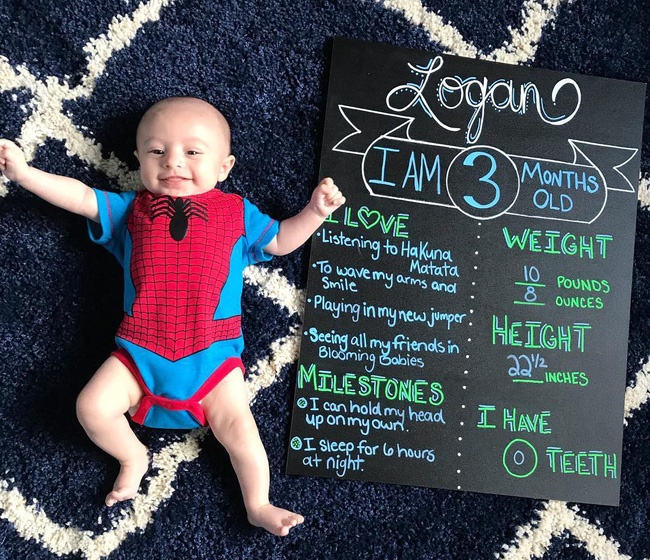 Logan
I AM 3 MONTHS
OLD
I LOVE
• Listening to HaKuna
Matata
• To wave my arms and
Smile
• Playing in my new jumper
• Seeing all my friends in
Blooming Babies
MILESTONES
I can hold my head
up on my own.
I sleep for 6 hours
at night.
WEIGHT
10 POUNDS
8 OUNCES
HEIGHT
22 1/2 INCHES
I HAVE
0 TEETH